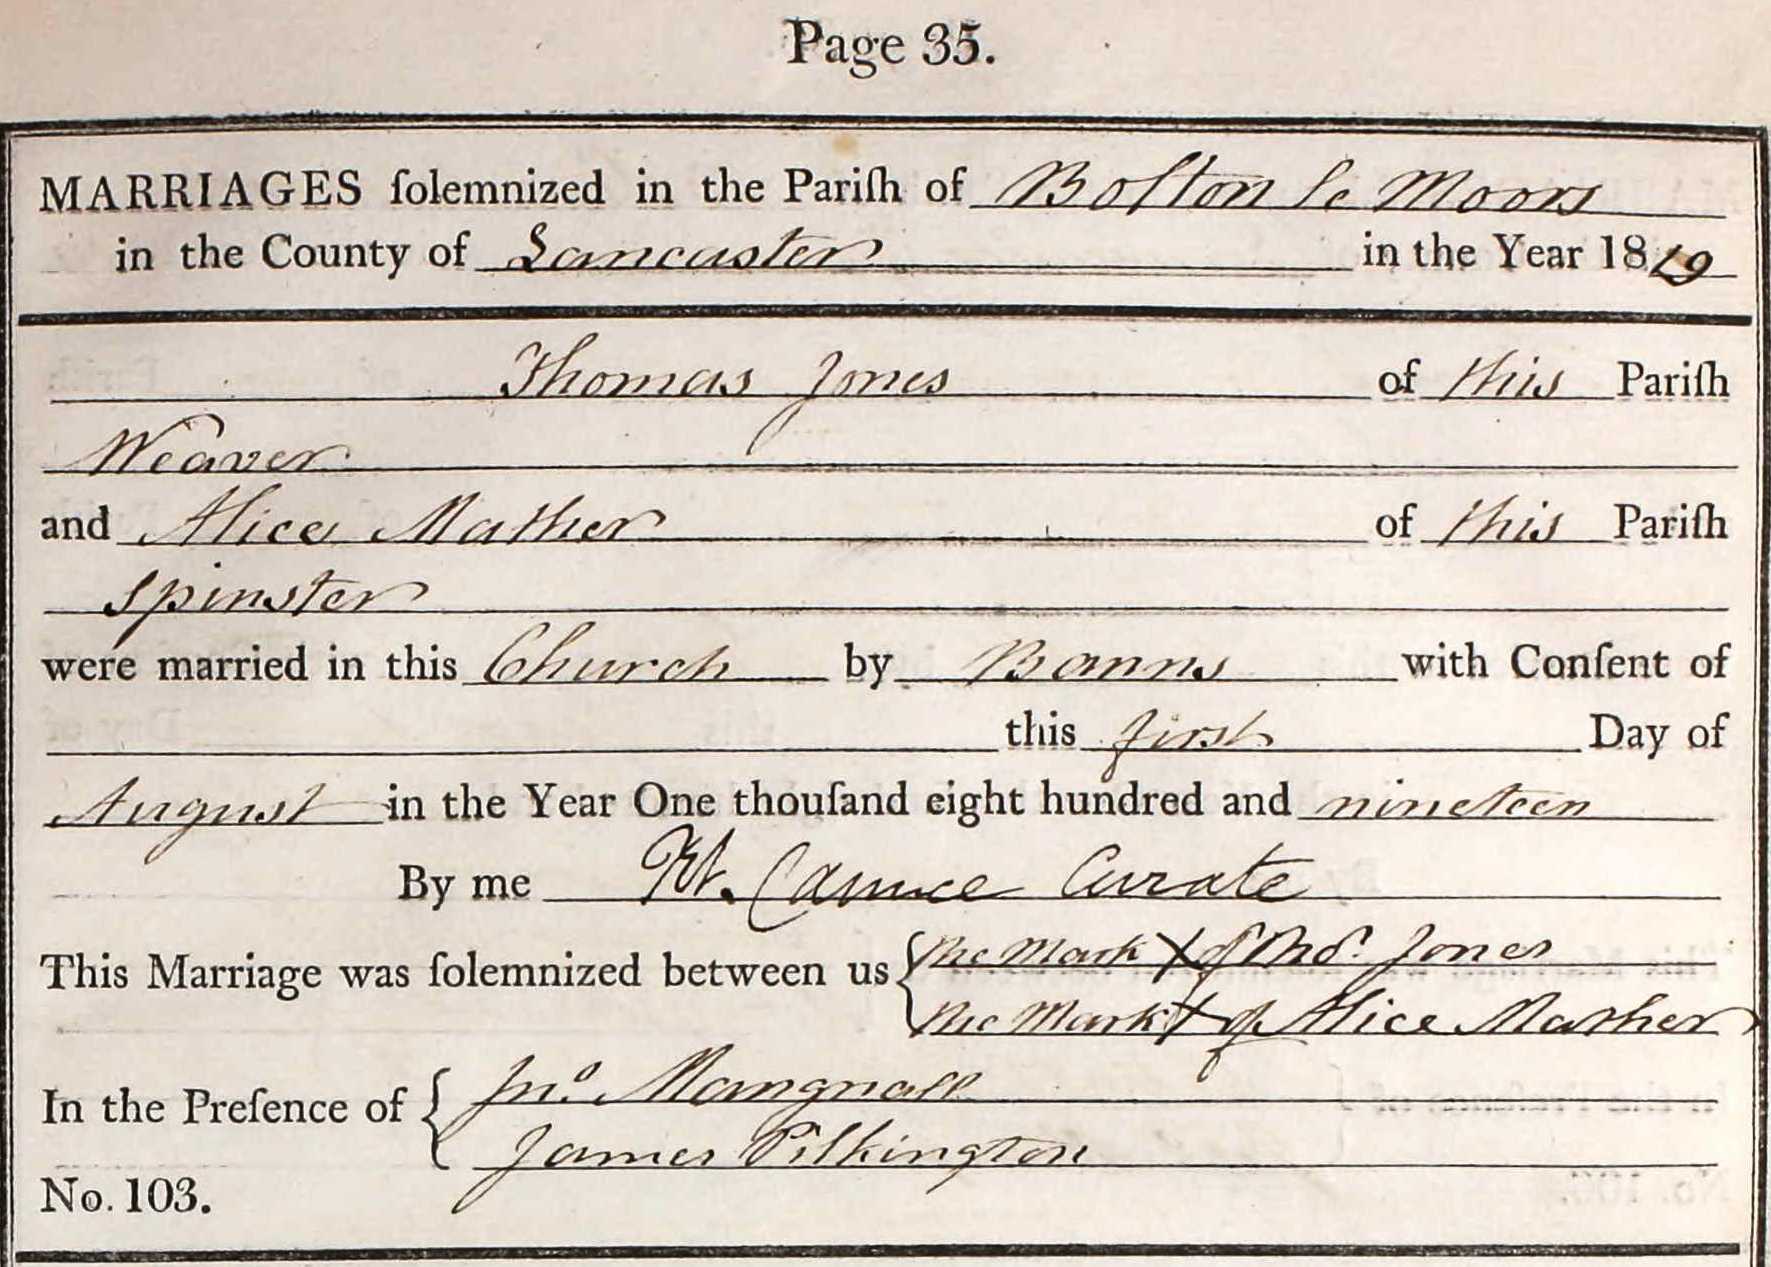 Page 35.
MARRIAGES ſolemnized in the Pariſh of Bolton le Moors
in the County of Lancaster in the Year 1819
Thomas Jones of this Pariſh
Weaver
and Alice Mather of this Pariſh
Spinster
were married in this Church by Banns with Conſent of
this first Day of
August in the Year One thouſand eight hundred and nineteen
By me Curate
This Marriage was ſolemnized between us { The Mark X of Thos. Jones
The Mark X of Alice Mather
In the Preſence of { Jno. Mangnall
James Pilkington
No. 103.